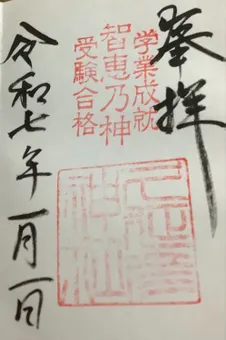 奉拝
学業成就
智恵乃神
受験合格
神社
令和七年一月一日